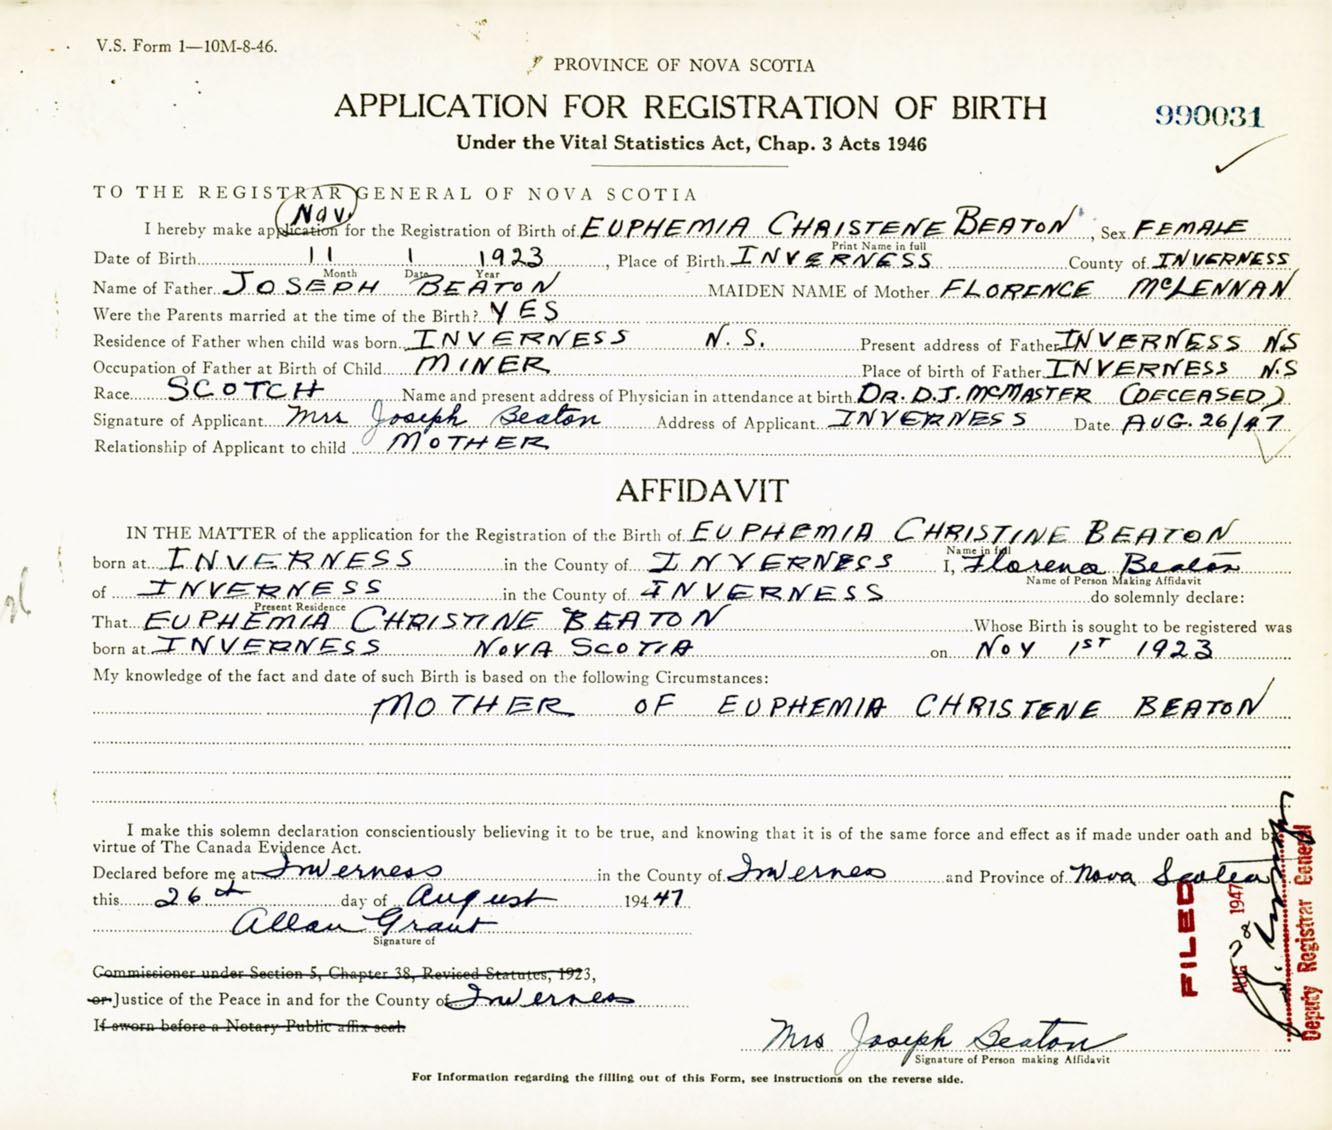 V.S. Form 1—10M-8-46.
PROVINCE OF NOVA SCOTIA
APPLICATION FOR REGISTRATION OF BIRTH
990031
Under the Vital Statistics Act, Chap. 3 Acts 1946
TO THE REGISTRAR GENERAL OF NOVA SCOTIA
Nov.
I hereby make application for the Registration of Birth of EUPHEMIA CHRISTENE BEATON, Sex FEMALE
Print Name in full
Date of Birth 11 1 1923, Place of Birth INVERNESS County of INVERNESS
Month Date Year
Name of Father JOSEPH BEATON MAIDEN NAME of Mother FLORENCE McLENNAN
Were the Parents married at the time of the Birth? YES
Residence of Father when child was born INVERNESS N.S. Present address of Father INVERNESS NS
Occupation of Father at Birth of Child MINER Place of birth of Father INVERNESS N.S
Race SCOTCH Name and present address of Physician in attendance at birth DR. D.J. McMASTER (DECEASED)
Signature of Applicant Mrs Joseph Beaton Address of Applicant INVERNESS Date AUG. 26/47
Relationship of Applicant to child MOTHER
AFFIDAVIT
IN THE MATTER of the application for the Registration of the Birth of EUPHEMIA CHRISTINE BEATON
Name in full
born at INVERNESS in the County of INVERNESS I, Florence Beaton
Name of Person Making Affidavit
of INVERNESS in the County of INVERNESS do solemnly declare:
Present Residence
That EUPHEMIA CHRISTINE BEATON Whose Birth is sought to be registered was
born at INVERNESS NOVA SCOTIA on NOV 1ST 1923
My knowledge of the fact and date of such Birth is based on the following Circumstances:
MOTHER OF EUPHEMIA CHRISTENE BEATON
I make this solemn declaration conscientiously believing it to be true, and knowing that it is of the same force and effect as if made under oath and by
virtue of The Canada Evidence Act.
Declared before me at Inverness in the County of Inverness and Province of Nova Scotia
this 26th day of August 1947
Allan Grant
Signature of
Commissioner under Section 5, Chapter 38, Revised Statutes, 1923,
or Justice of the Peace in and for the County of Inverness
If sworn before a Notary Public affix seal.
Mrs Joseph Beaton
Signature of Person making Affidavit
For Information regarding the filling out of this Form, see instructions on the reverse side.
FILED
AUG 1947
Deputy Registrar General